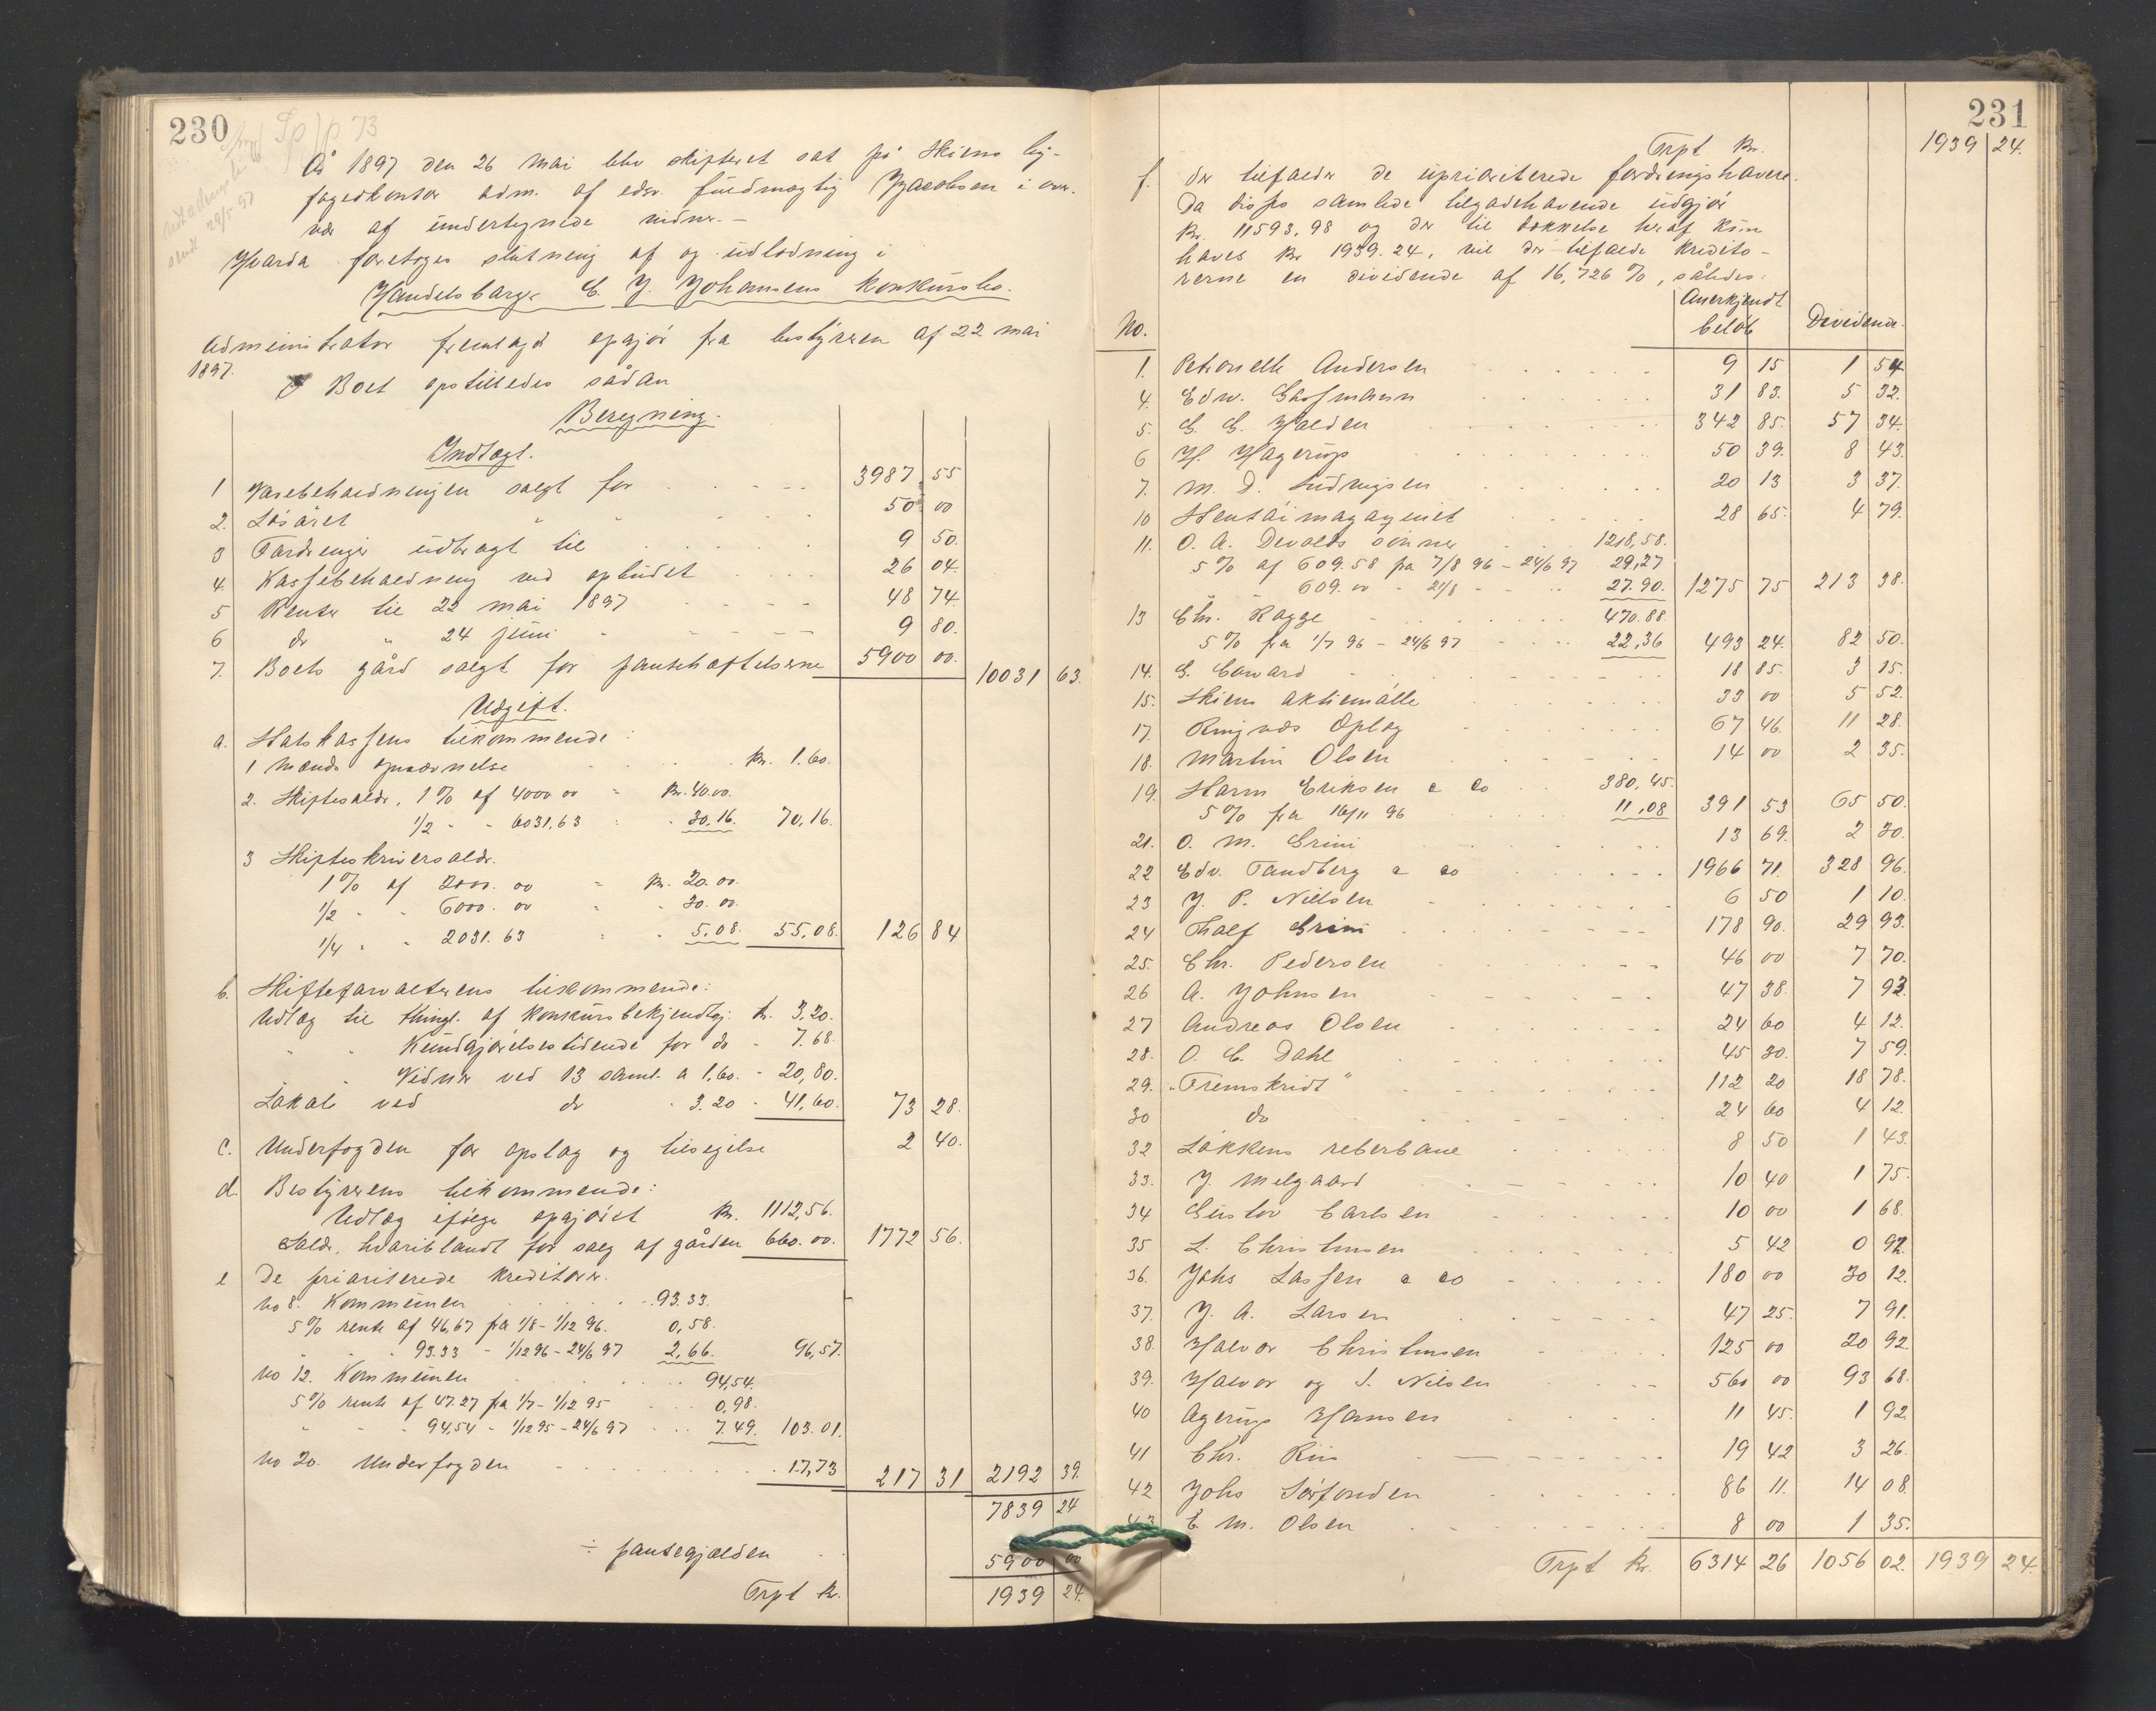 230
Sp/p 73
År 1897 den 26 mai blev skifteret sat på Skiens by-
fogedkontor adm. af edsv. fuldmægtig Jacobsen i over-
vær af undertegnede vidner. –
Hvorda foretoges slutning af og udlodning i
Handelsborger C. J. Johansens konkursbo.
Administrator fremlagde opgjør fra bestyreren af 22 mai
1897.
Boet opstilledes sådan
Beregning.
Indtægt.
1 Varebeholdningen solgt for 3987 55
2. Løsøret " " 50 00
3 Fordringer udbragt til 9 50.
4. Kassebeholdning ved opbudet 26 04.
5 Renter til 22 mai 1897 48 74.
6 do " 24 juni " 9 80.
7. Boets gård solgt for pantehæftelserne 5900 00. 10031 63.
Udgift.
a. Statskassens tilkommende:
1 Mænds opnævnelse Kr. 1.60.
2. Skiftesaldr. 1% af 4000 00 = Kr. 40.00.
1/2 - - 6031,63 - 30,16. 70,16.
3 Skifteskriversaldr.
1% af 2000. 00 = Kr. 20.00.
1/2 - - 6000. 00 - 30.00.
1/4 - - 2031.63 - 5.08. 55,08. 126 84
b. Skifteforvalterens tilkommende:
Udlæg til thingl. af konkursbekjendtgj. kr. 3,20.
" " Kundgjørelsestidende for do - 7.68.
" " Vidner ved 13 saml. a 1,60. - 20,80.
Lokale ved do - 3.20 - 41,60. 73 28.
c. Underfogden for opslag og tilsigelse 2 40.
d. Bestyrerens tilkommende:
Udlæg ifølge opgjøret Kr. 1112,56.
Salær, hvoriblandt for salg af gården 660.00. 1772 56.
e De prioriterede kreditorer.
No 8. Kommunen 93.33.
5% rente af 46,67 fra 1/8 - 1/12 96. 0,58.
" " " 93.33 - 1/12 96 - 24/6 97 2,66. 96,57.
No 12. Kommunen 94,54.
5% rente af 47.27 fra 1/7 - 1/12 95 0,98.
" " " 94,54 - 1/12 95 - 24/6 97 7.49. 103.01.
No 20. Underfogden 17,73 217 31 2192 39.
7839 24
÷ pantegjælden 5900 00
Trpt kr. 1939 24.
231
Trpt Kr. 1939 24.
f. der tilfalder de uprioriterede fordringshavere.
Da disses samlede tilgodehavende udgjør
Kr. 11593,98 og der til dækkelse heraf kun
haves Kr 1939.24, vil der tilfalde kredito-
rerne en dividende af 16,726 %, således:
No. Anerkjendt beløb Dividende.
1. Petronelle Andersen 9 15 1 54
4. Edw. Ghofmann 31 83. 5 32.
5. C. C. Halden 342 85. 57 34.
6 H. Hagerup 50 39. 8 43.
7. M. D. Ludvigsen 20 13 3 37.
10 Stentøimagazinet 28 65. 4 79.
11. O. A. Devolds sønner 1218,58.
5% af 609.58 fra 7/8 96 - 24/6 97 29,27
" " 609.00 - 21/8 - - " 27.90. 1275 75 213 38.
13 Chr. Kagge 470.88.
5% fra 1/7 96 - 24/6 97 22,36 493 24. 82 50.
14. G. Coward 18 85. 3 15.
15. Skiens aktiemølle 33 00 5 52.
17. Ringnes Oplag 67 46. 11 28.
18. Martin Olsen 14 00 2 35.
19. Harm Eriksen & Co 380,45.
5% fra 16/11 96 11,08 391 53 65 50.
21. O. M. Grini 13 69. 2 30.
22 Edv. Tandberg & co 1966 71. 328 96.
23 J. P. Nielsen 6 50 1 10.
24 Thalf Grini 178 90. 29 93.
25. Chr. Pedersen 46 00 7 70.
26 A. Johnsen 47 38. 7 93.
27 Andreas Olsen 24 60 4 12.
28. O. C. Dahl 45 30. 7 59.
29. „Fremskridt" 112 20 18 78.
30 do 24 60 4 12.
32 Løkkens reberbane 8 50 1 43.
33. J. Melgaard 10 40 1 75.
34 Gustav Carlsen 10 00 1 68.
35 L. Christensen 5 42 0 92.
36. Johs Lassen & co 180 00 30 12.
37. J. A. Larsen 47 25. 7 91.
38. Halvor Christensen 125 00 20 92.
39. Halvor og S. Nilsen 560 00 93 68.
40 Agerup Hansen 11 45. 1 92.
41 Chr. Riis 19 42 3 26.
42 Johs Sørfonden 86 11. 14 08.
43 E. M. Olsen 8 00 1 35.
Trpt kr. 6314 26 1056 02. 1939 24.